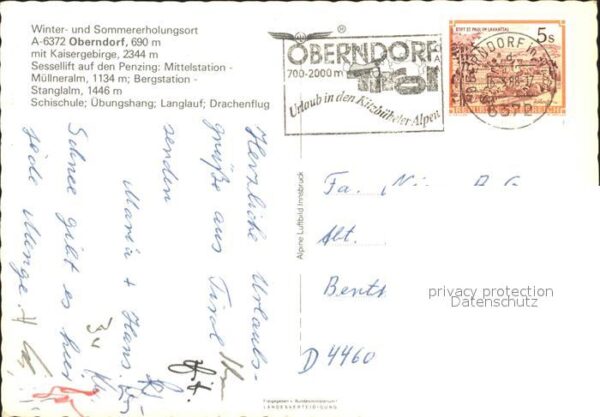 Winter- und Sommererholungsort
A-6372 Oberndorf, 690 m
mit Kaisergebirge, 2344 m
Sessellift auf den Penzing: Mittelstation -
Müllneralm, 1134 m; Bergstation -
Stanglalm, 1446 m
Schischule; Übungshang; Langlauf; Drachenflug
OBERNDORF
700-2000 m
TIROL
Urlaub in den Kitzbüheler Alpen
STIFT ST. PAUL IM LAVANTTAL
5s
OBERNDORF in
6372
Herzliche Urlaubs-
grüße aus Tirol
senden
Maria + Hans.
Schnee gibt es hier
jede Menge.
Alpine Luftbild Innsbruck
Fa.
Abt.
Benth
D 4460
privacy protection
Datenschutz
Freigegeben v. Bundesministerium f.
LANDESVERTEIDIGUNG